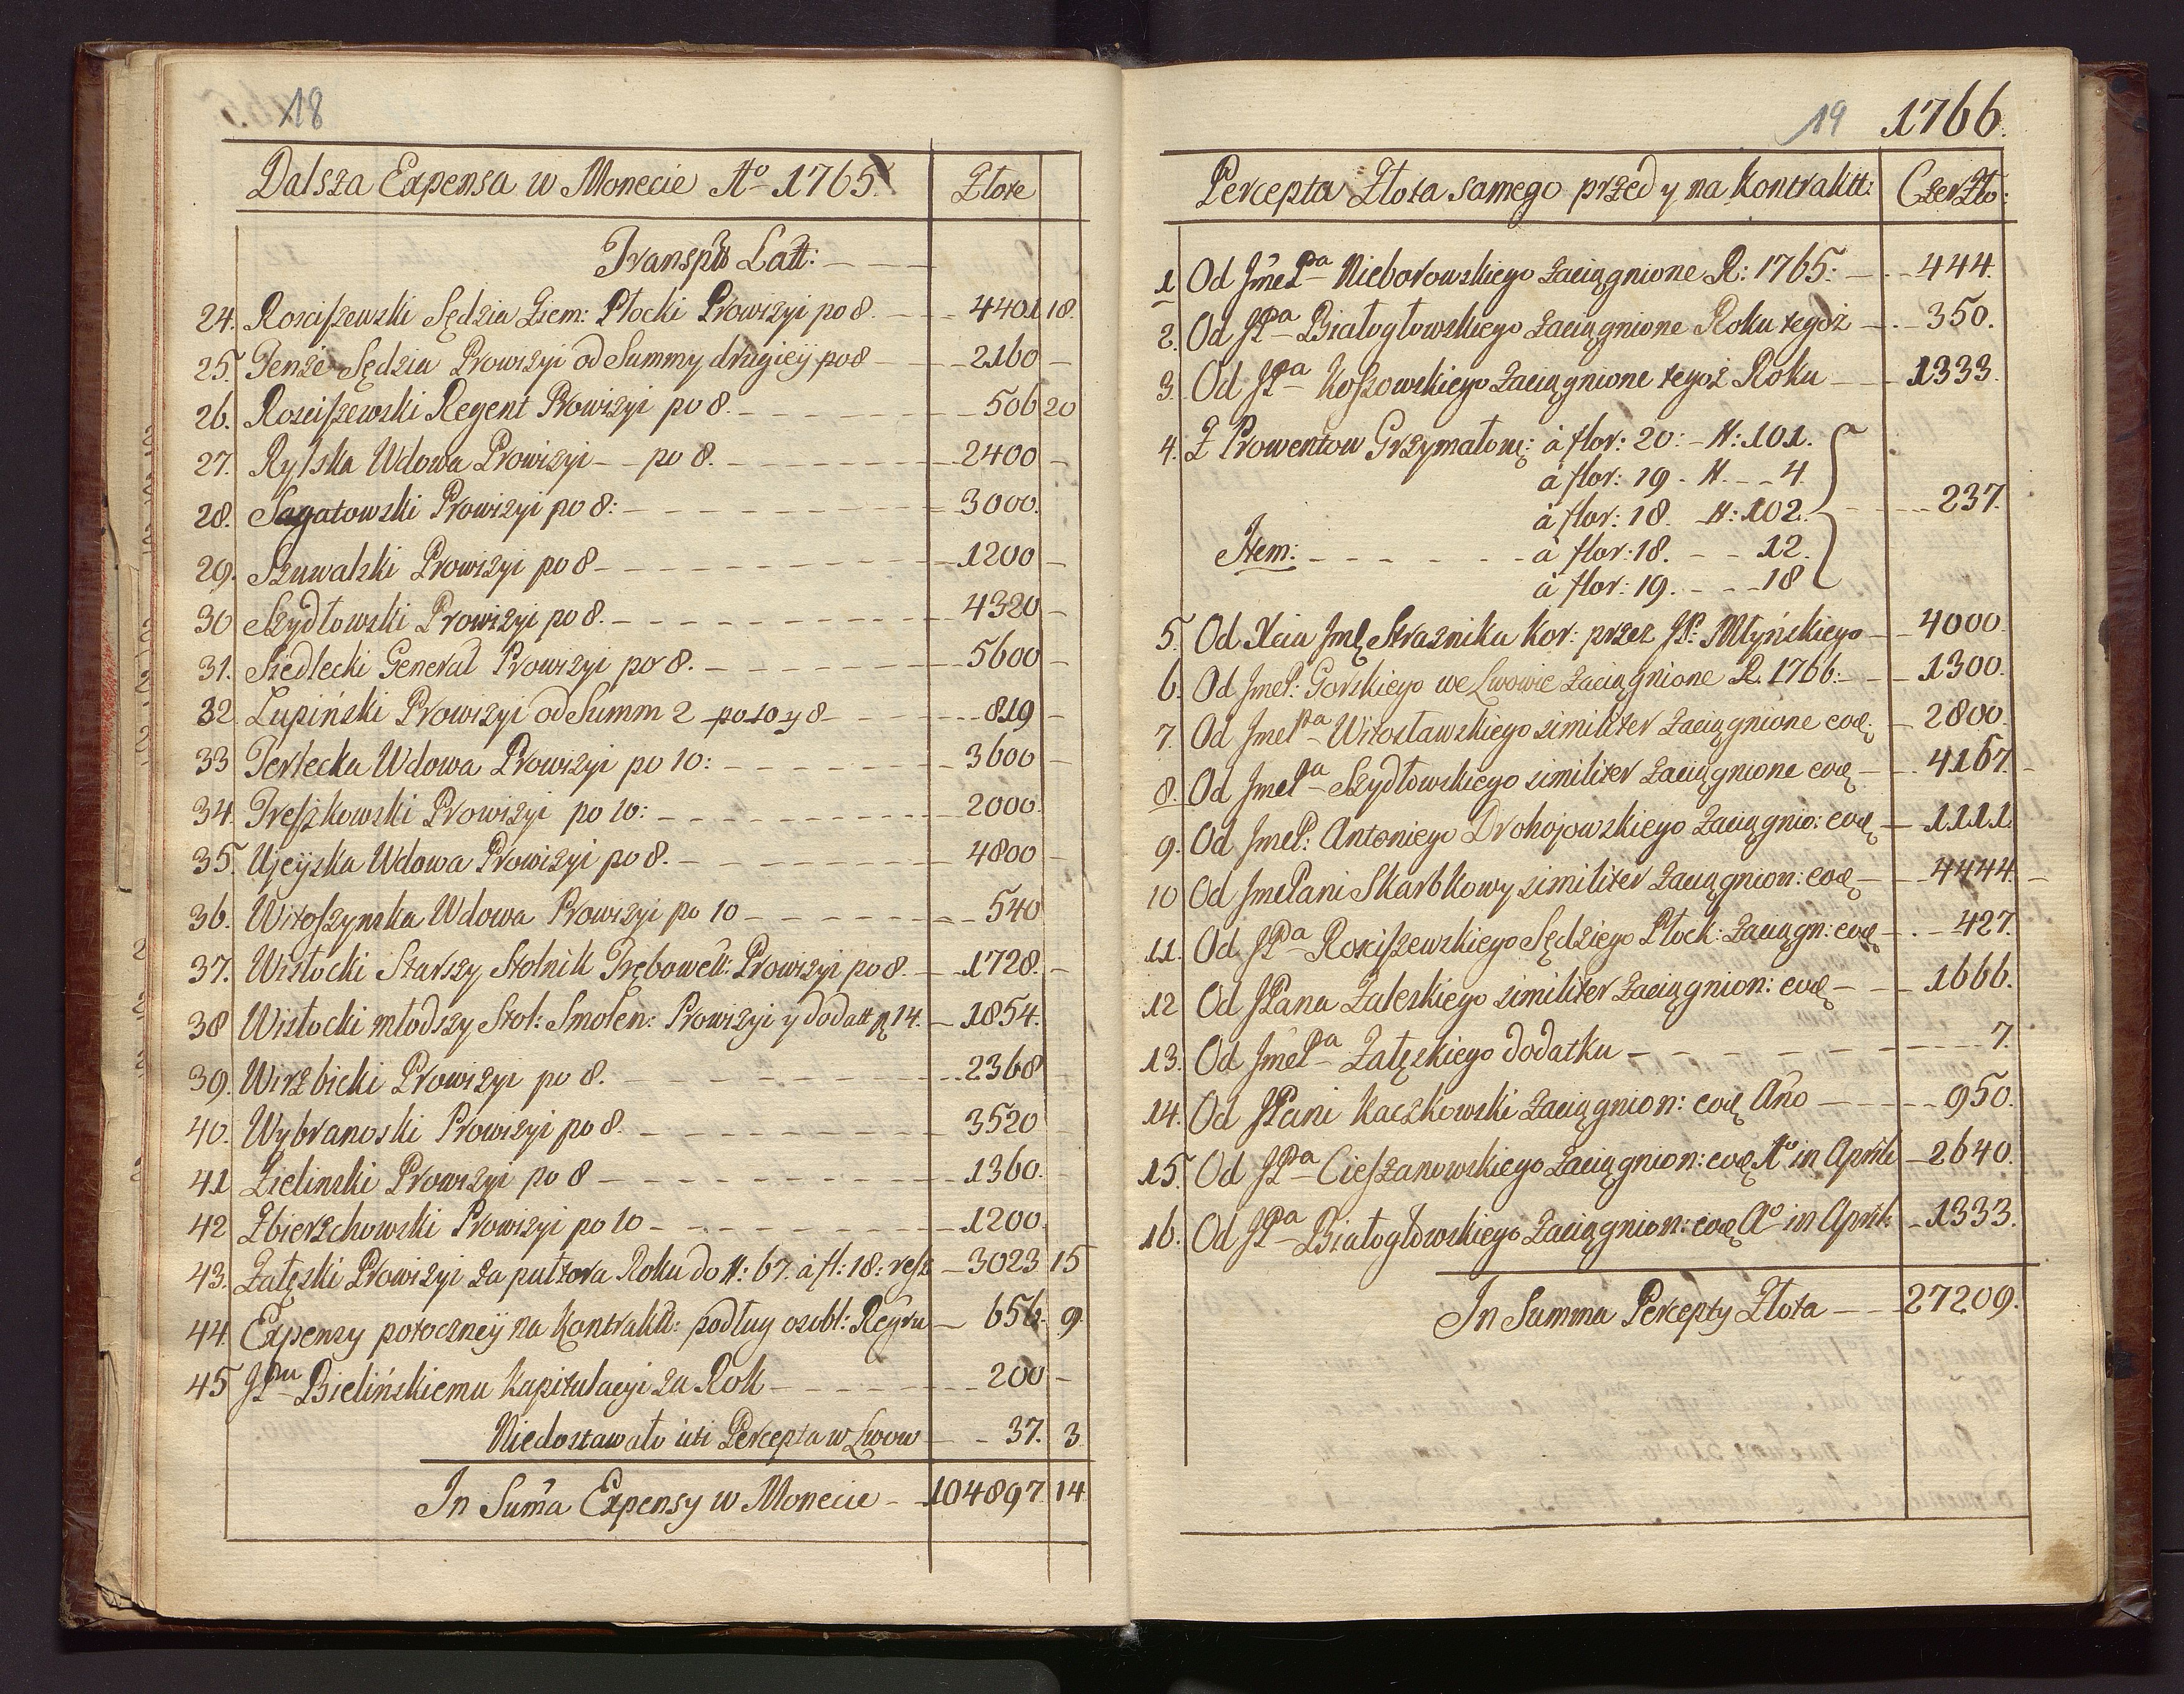 18
Dalsza Expensa w Monecie Aº 1765. Złote
Transpłt Latt:
24. Rosciszewski Sędzia Ziem: Płocki Prowizyi po 8. 4401 18.
25. Tenże Sędzia Prowizyi od Summy drugieÿ po 8 2160
26. Rosciszewski Regent Prowizyi po 8. 506 20
27. Rylska Wdowa Prowizyi po 8. 2400
28. Sagatowski Prowizyi po 8: 3000.
29. Szuwalski Prowizyi po 8 1200
30 Szydłowski Prowizyi po 8. 4320
31. Siedlecki Generał Prowizyi po 8. 5600
32. Łupiński Prowizyi od Summ 2 po 10 y 8 819
33 Terlecka Wdowa Prowizyi po 10: 3600
34. Treszkowski Prowizyi po 10: 2000.
35. Ujeÿska Wdowa Prowizyi po 8. 4800
36. Witoszynska Wdowa Prowizyi po 10 540
37. Wisłocki Starszy Stolnik Trębowell: Prowizyi po 8. 1728.
38 Wisłocki młodszy Stol: Smolen: Prowizyi y dodatt 14. 1854.
39. Wirzbicki Prowizyi po 8. 2368
40. Wybranoski Prowizyi po 8. 3520
41 Zielinski Prowizyi po 8 1360.
42 Zbierzchowski Prowizyi po 10 1200.
43. Załęski Prowizyi za pułtora Roku do #: 67. à fl: 18: resz 3023 15
44. Expensy potoczneÿ na Kontraktt: podług osobl: Regru 656. 9.
45 JPnu Bielińskiemu Kapitulacyi za Rok 200
Niedostawało iuti Percepta w Lwow 37. 3
In Sum̃a Expensy w Monecie 104897. 14
19 1766.
Percepta Złota samego przed y na Kontraktt: CzerZło:
1. Od JmePa Nieborowskiego zaciągnione R: 1765: 444.
2. Od JPa Białogłowskiego zaciągnione Roku tegoż 350.
3. Od JPa Koszowskiego zaciągnione tegoż Roku 1333.
4. Z Prowentow Grzymałow: à flor: 20: #: 101.
à flor: 19 - #. 4.
à flor: 18. #: 102. 237.
Item: à flor: 18. 12.
à flor: 19. 18
5. Od Xcia Jmę Straznika Kor: przez JP: Młyńskiego 4000.
6. Od JmeP: Gorskiego we Lwowie zaciągnione R. 1766: 1300.
7. Od JmePa Witosławskiego similiter zaciągnione eoę. 2800.
8. Od JmePa Szydłowskiego similiter zaciągnione eoę 4167.
9. Od JmeP: Antoniego Drohojowskiego zaciągnio: eoę 1111.
10 Od JmePani Skarbkowy similiter zaciągnion: eoę 4444.
11. Od JPa Rosciszewskiego Sędziego Płock: zaciągn: eoę 427.
12 Od JPana Zaleskiego similiter zaciągnion: eoę 1666.
13. Od JmePa Załęskiego dodatku 7.
14. Od JPani Kaczkowski zaciągnion: eoę Año 950.
15. Od JPa Cieszanowskiego zaciągnion: eoę Aº in Aprili 2640.
16. Od JPa Białogłowskiego zaciągnion: eoę Aº in Aprili 1333.
In Summa Percepty Złota 27209.